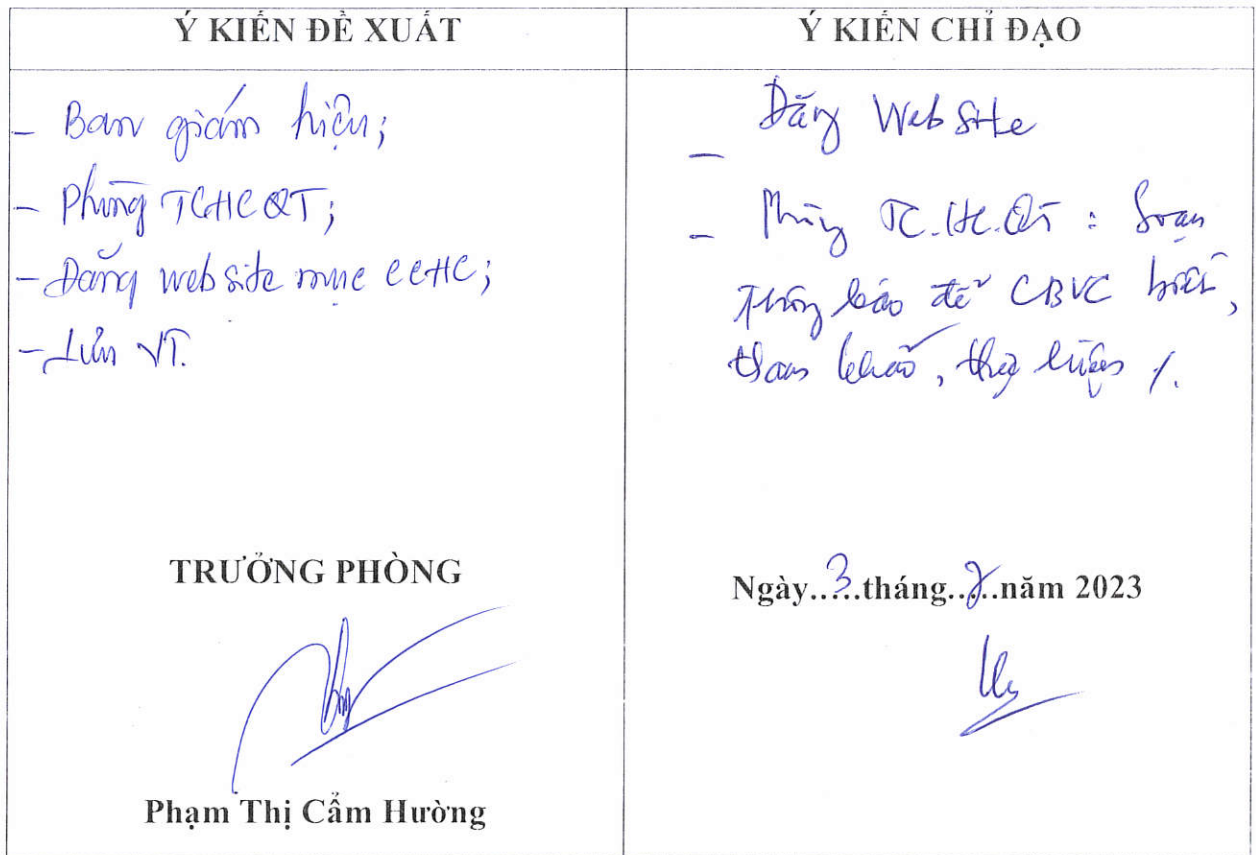 Ý KIẾN ĐỀ XUẤT
- Ban giám hiệu;
- Phòng TCHCQT;
- Đăng website mục CCHC;
- Lưu VT.
TRƯỞNG PHÒNG
Phạm Thị Cẩm Hường
Ý KIẾN CHỈ ĐẠO
- Đăng Website
- Phòng TC.HC.QT : Soạn
Thông báo để CBVC biết,
tham khảo, thực hiện /.
Ngày..3..tháng..2..năm 2023